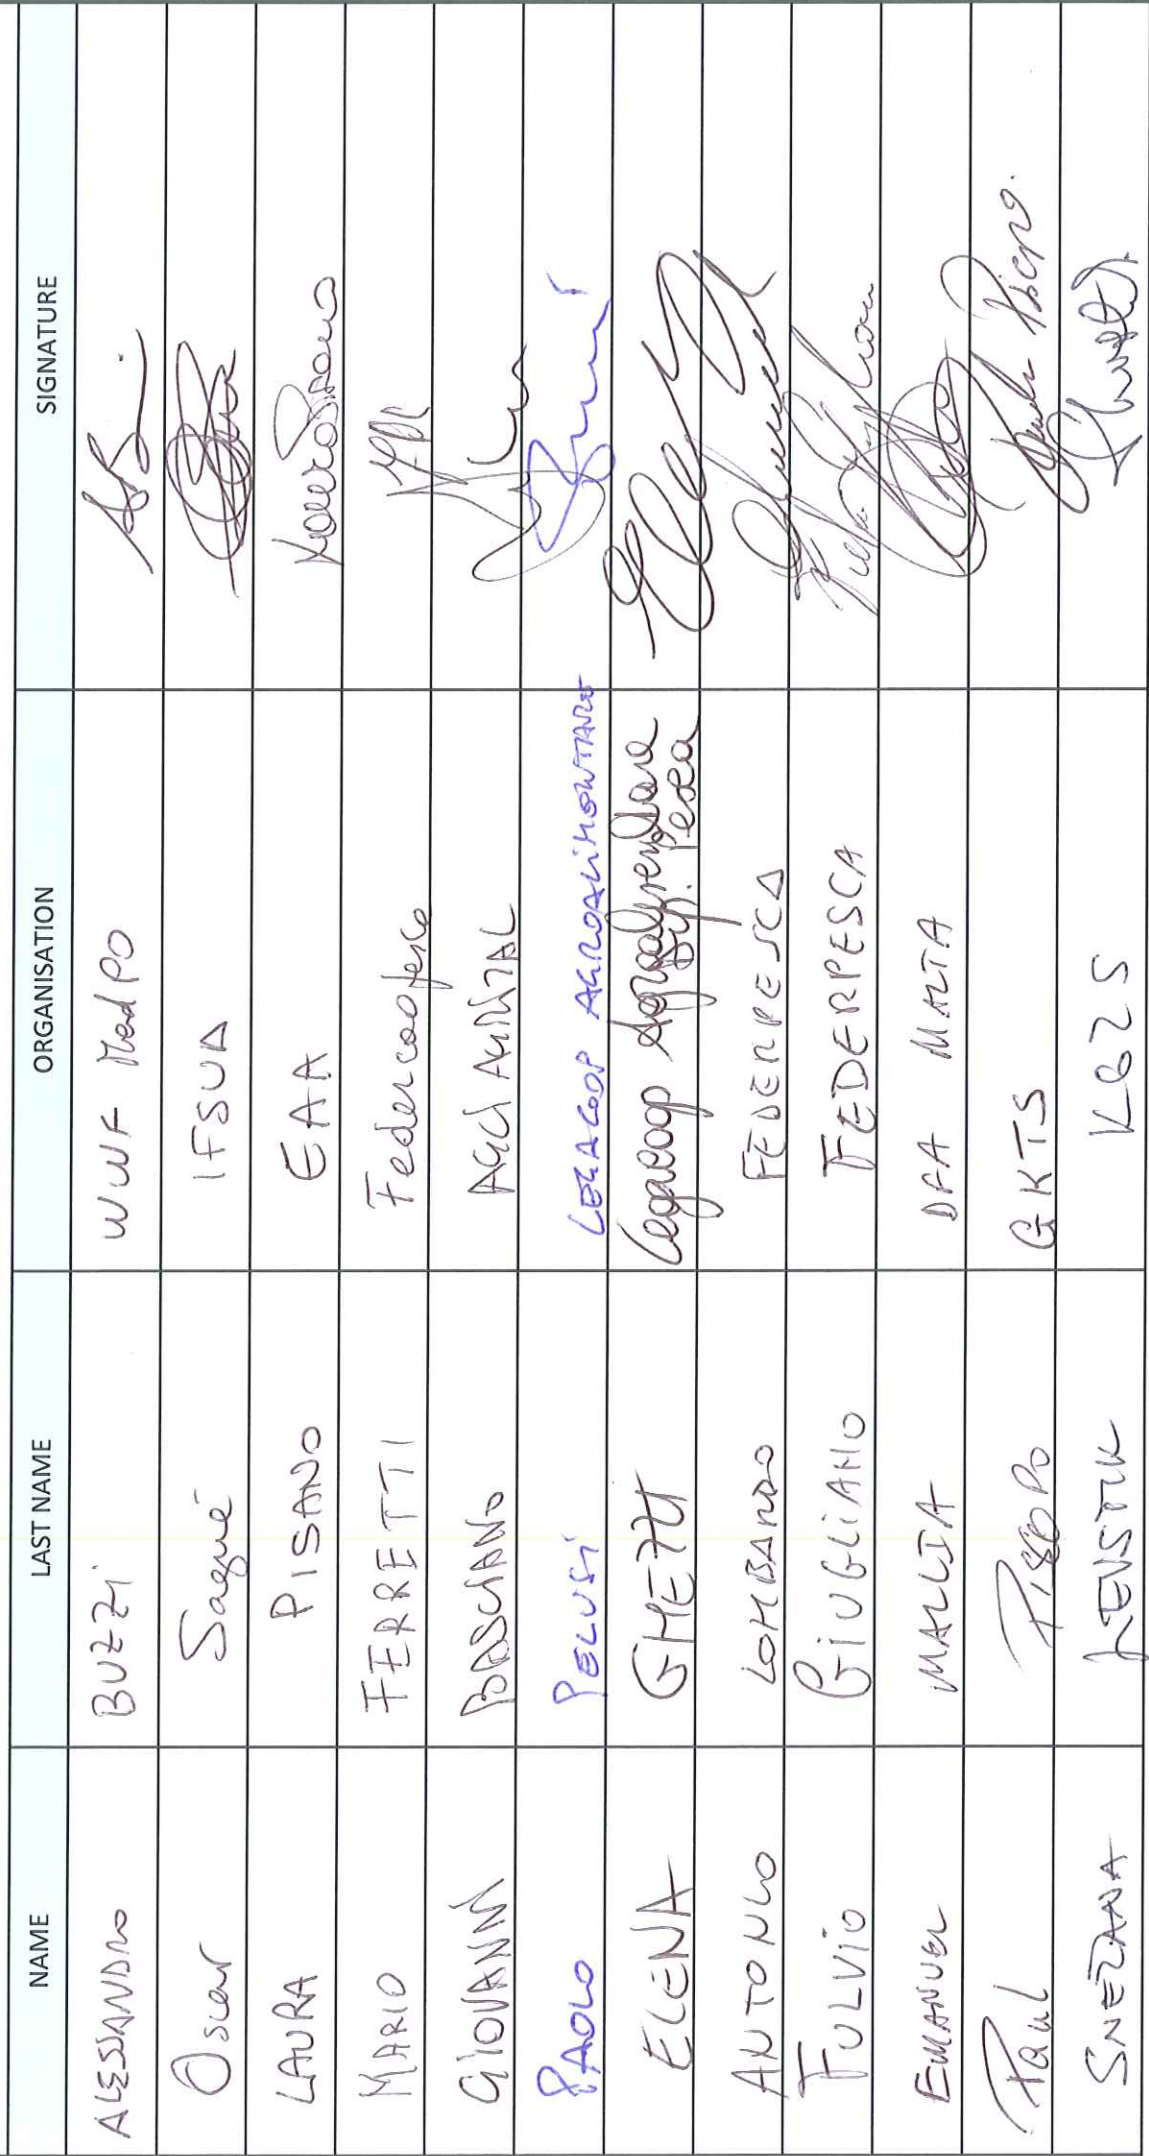 NAME LAST NAME ORGANISATION SIGNATURE
ALESSANDRO BUZZi WWF MedPO
Oscar Sagué IFSUA
LAURA PISANO EAA Laura Pisano
MARIO FERRETTI Federcoopesca
GIOVANNI BASCIANO AGCI AGRITAL
PAOLO PELUSi LEGACOOP AGROALIMENTARE
ELENA GHEZZI Legacoop Agroalimentare Dip. Pesca
ANTONIO LOMBARDO FEDERPESCA
FULViO GiUGLiANO FEDERPESCA Fulvio Giugliano
EMANUEL MALLIA DFA MALTA
Paul PISCOPO GKTS
SNEŽANA LEVSTIK KGZS